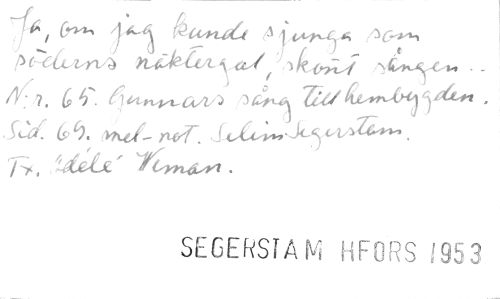 Ja, om jag kunde sjunga som
söderns näktergal, skönt sången..
N:r. 65. Gunnars sång till hembygden.
Sid. 69. mel-not. Selim Segerstam.
Tx. Adélé Weman.
SEGERSTAM HFORS 1953